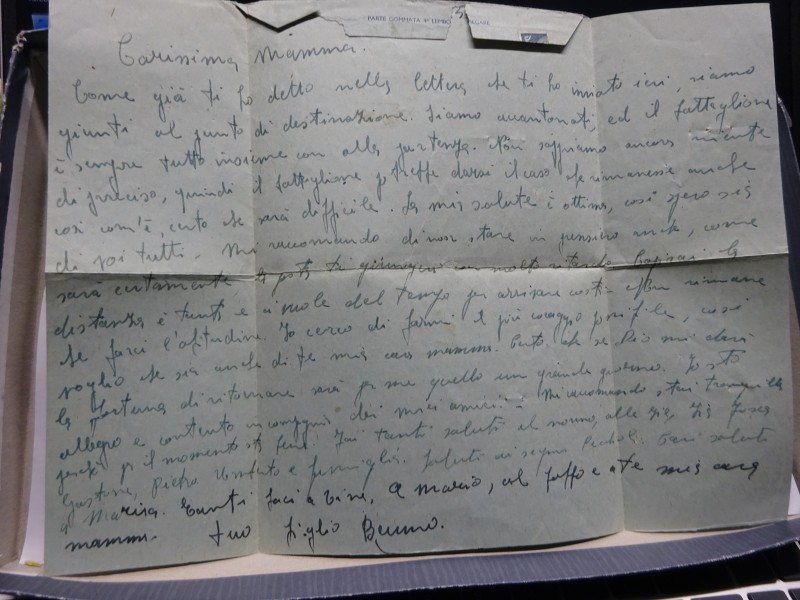 PARTE GOMMATA
Carissima Mamma.
Come già ti ho detto nella lettera che ti ho inviato ieri, siamo
giunti al punto di destinazione. Siamo accantonati, ed il battaglione
è sempre tutto insieme con alla partenza. Non sappiamo ancora niente
di preciso, quindi il battaglione potrebbe darsi il caso che rimanesse anche
così com'è, certo che sarà difficile. La mia salute è ottima, così spero sia
di voi tutti. Mi raccomando di non stare in pensiero anche, come
sarà certamente la posta ti giungerà con molto ritardo. la
distanza è tanta e ci vuole del tempo per arrivare costì. rimane
che farci l'abitudine. Io cerco di farmi il più coraggio possibile, così
voglio che sia anche di te mia cara mamma. Certo che se Dio mi darà
la fortuna di ritornare sarà per me quello un grande giorno. Io sto
allegro e contento in compagnia dei miei amici. Mi raccomando stai tranquilla
perché per il momento sto bene. Fai tanti saluti al nonno, alle zie, Zia
Gastone, Pietro Umberto e famiglia. Saluti saluti
a Marisa. Tanti baci a Dina, a Mario, al babbo e a te mia cara
mamma. tuo figlio Bruno.